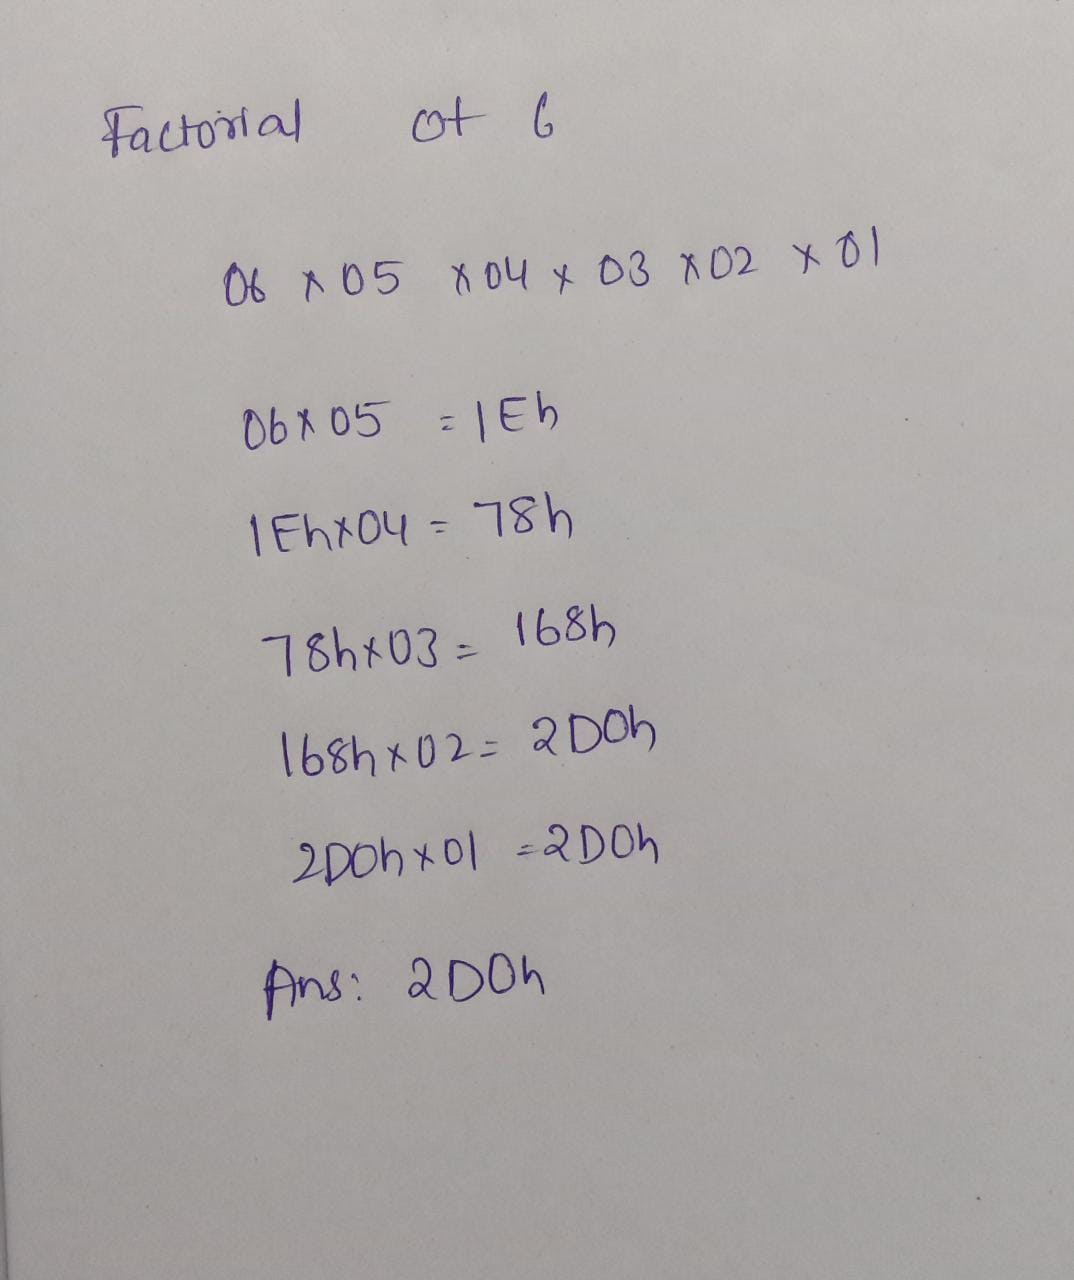 Factorial of 6
06 x 05 x 04 x 03 x 02 x 01
06 x 05 = 1Eh
1Eh x 04 = 78h
78h x 03 = 168h
168h x 02 = 2D0h
2D0h x 01 = 2D0h
Ans: 2D0h